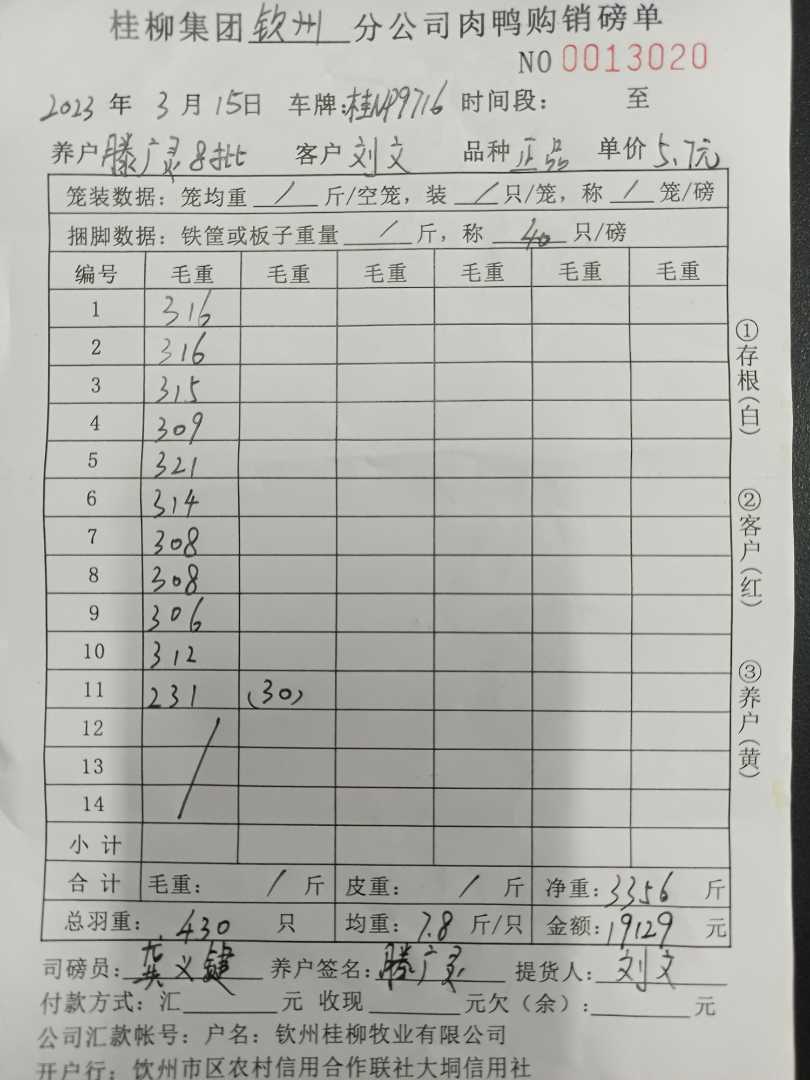 桂柳集团钦州分公司肉鸭购销磅单
NO 0013020
2023 年 3 月 15日 车牌:桂NP9716 时间段: 至
养户滕广灵8批 客户 刘文 品种 正品 单价 5.7元
笼装数据: 笼均重 / 斤/空笼, 装 / 只/笼, 称 / 笼/磅
捆脚数据: 铁筐或板子重量 / 斤, 称 40 只/磅
编号 毛重 毛重 毛重 毛重 毛重 毛重
1 316
2 316
3 315
4 309
5 321
6 314
7 308
8 308
9 306
10 312
11 231 (30)
12
13
14
小计
合计 毛重: / 斤 皮重: / 斤 净重: 3356 斤
总羽重: 430 只 均重: 7.8 斤/只 金额: 19129 元
司磅员: 义键 养户签名: 滕广灵 提货人: 刘文
付款方式: 汇 元 收现 元欠(余): 元
公司汇款帐号: 户名: 钦州桂柳牧业有限公司
开户行: 钦州市区农村信用合作联社大垌信用社
①存根(白)
②客户(红)
③养户(黄)